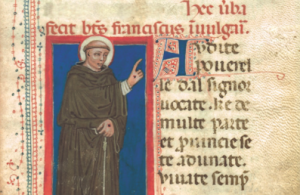 Hec uba
fecit bts franciscus i uulgari.
Audite
pouerel
le dal signor
uocate. ke de
multe parte
et prouincie se
te adunate.
Vivate semp